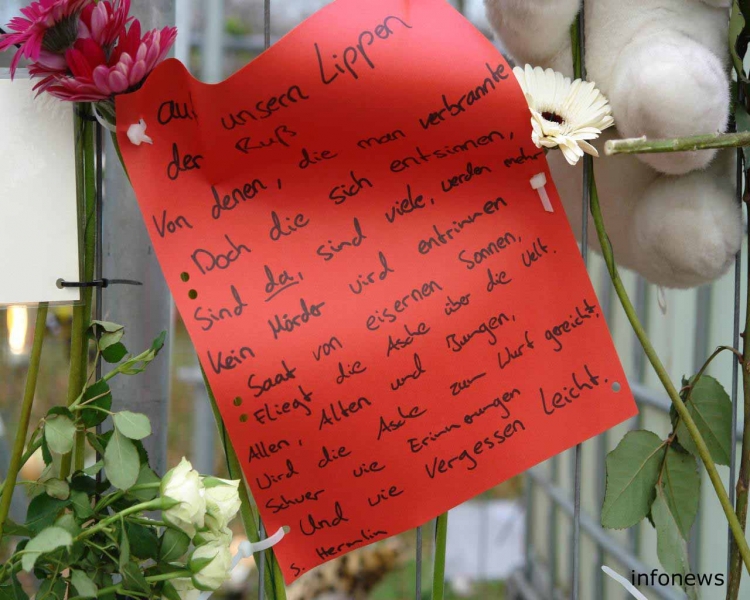 auf unsern Lippen
der Ruß
Von denen, die man verbrannte
Doch die sich entsinnen,
Sind da, sind viele, werden mehr
Kein Mörder wird entrinnen
Saat von eisernen Sonnen,
Fliegt die Asche über die Welt.
Allen, Alten und Jungen,
Wird die Asche zum Wurf gereicht,
Schwer wie Erinnerungen
Und wie Vergessen Leicht.
S. Hermlin
infonews